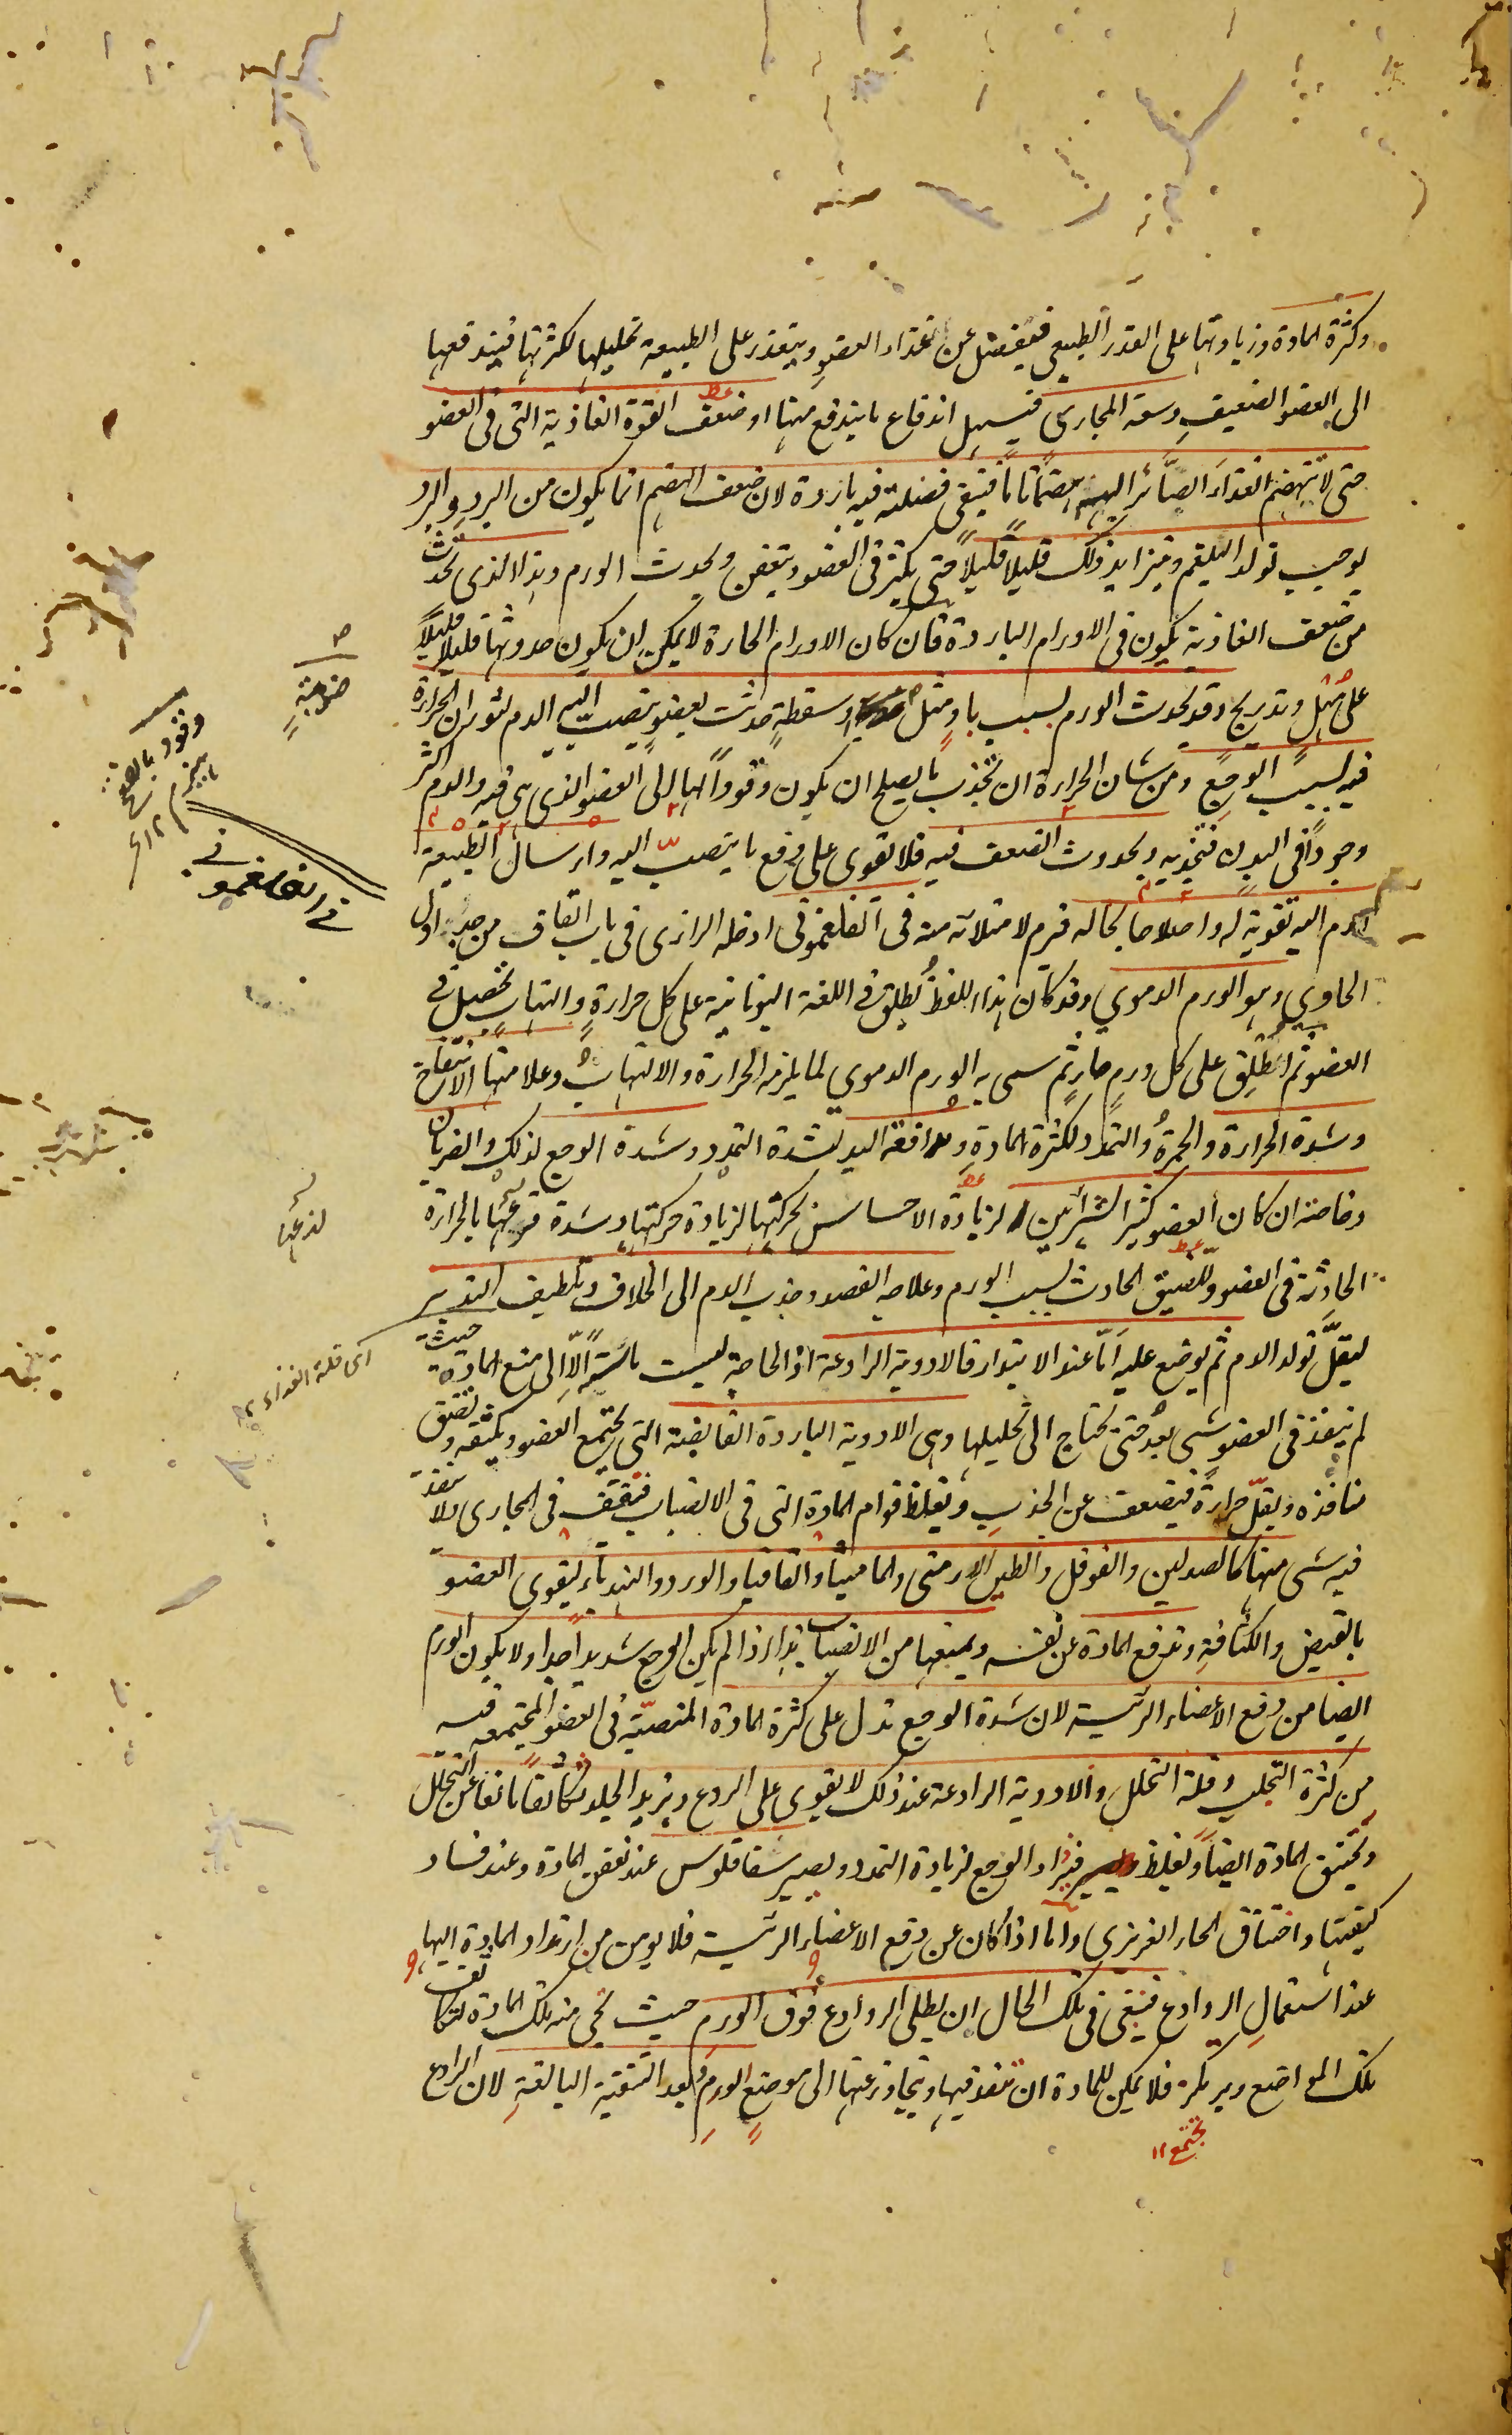 وكثرة المادة وزيادتها على القدر الطبيعى فيفضل عن غذاء العضو ويتعذر على الطبيعة تحليلها لكثرتها فيندفعها
الى العضو الضعيف وسعة المجارى فيسهل اندفاع ما يندفع منها او ضعف القوة الغاذية التى فى العضو
حتى لا تنهضم الغذاء الصائر اليه هضما تاما فيبقى فضلته فيه باردة لان ضعف الهضم انما يكون من البرد والبرد
يوجب تولد البلغم ويتزايد ذلك قليلاً قليلاً حتى يكثر فى العضو ويتعفن ويحدث الورم وهذا الذى يحدث
من ضعف الغاذية يكون فى الاورام الباردة فان كان الاورام الحارة لا يمكن ان يكون حدوثها قليلا قليلاً
على مهل وتدريج وقد يحدث الورم بسبب باد مثل او سقطة حدثت بعضو ينصب اليه الدم لثوران الحرارة
فيه بسبب الوجع ومن شان الحرارة ان تجذب ما يصلح ان يكون وقوداً لها الى العضو الذى هى فيه والدم اكثر
وجوداً فى البدن فتجذبه ويحدوث الضعف فيه فلا تقوى على دفع ما ينصب اليه وارسال الطبيعة
الدم اليه تقوية له واصلاحا بحاله فيرم لامتلائه منه فى الفلغمونى ادخله الرازى فى باب القاف من جداول
الحاوى وهو الورم الدموى وقد كان هذا اللفظ يطلق فى اللغة اليونانية على كل حرارة والتهاب يحصل فى
العضو ثم اطلق على كل ورم حار ثم سمى به الورم الدموى لما يلزمه الحرارة والالتهاب وعلامتها الانتفاخ
وشدة الحرارة والحمرة والتمدد لكثرة المادة ومدافعة اليد لشدة التمدد وشدة الوجع لذلك والضربان
وخاصة ان كان العضو كثير الشرائين لزيادة الاحساس بحركتها لزيادة حركتها وشدة قرعها بالحرارة
الحادثة فى العضو وللضيق الحادث بسبب الورم وعلاجه الفصد وجذب الدم الى الخلاف وتلطيف التدبير
ليقل تولد الدم ثم يوضع عليه اما عند الابتداء فالادوية الرادعة اذ الحاجة ليست ماسة الا الى منع المادة حيث
لم ينفذ فى العضو شى بعد حتى يحتاج الى تحليلها وهى الادوية الباردة القابضة التى يجمع العضو ويكثفه وتضيق
منافذه ويقل حرارة فيضعف عن الجذب وتغلظ قوام المادة التى فى الانصباب فتقف فى المجارى ولا تنفذ
فيه شى منها كالصندلين والفوفل والطين الارمنى والماميثا والقاقيا والورد والهندباء ليقوى العضو
بالقبض والكثافة وتدفع المادة عن نفسه ويمنعها من الانصباب هذا اذا لم يكن الوجع شديدا جدا ولا يكون الورم
ايضا من دفع الاعضاء الرئيسية لان شدة الوجع تدل على كثرة المادة المنصبة فى العضو المجتمعة فيه
من كثرة التجلب وقلة التحلل والادوية الرادعة عند ذلك لا يقوى على الردع ويزيد الجلد تكاثفا مانعا عن التحلل
ويحتبس المادة ايضا وتغليظ فيزاد الوجع لزيادة التمدد ويصير سقاقلوس عند تعفن المادة وعند فساد
كيفيتها واختناق الحار الغريزى واما اذا كان عن دفع الاعضاء الرئيسية فلا يومن من ارتداد المادة اليها
عند استعمال الروادع فينبغى فى تلك الحال ان يطلى الروادع فوق الورم حيث يجى منه تلك المادة ليتكاثف
تلك المواضع وير تكز فلا يمكن للمادة ان تنفذ فيها ويتجاوز عنها الى موضع الورم وبعد التنقية البالغة لان الرادع
تجتمع ١١
ضربة
وقود بالفتح
هيزم ١٢
فى الفلغمونى
لذعها
اى قلة الغذاء ١٢